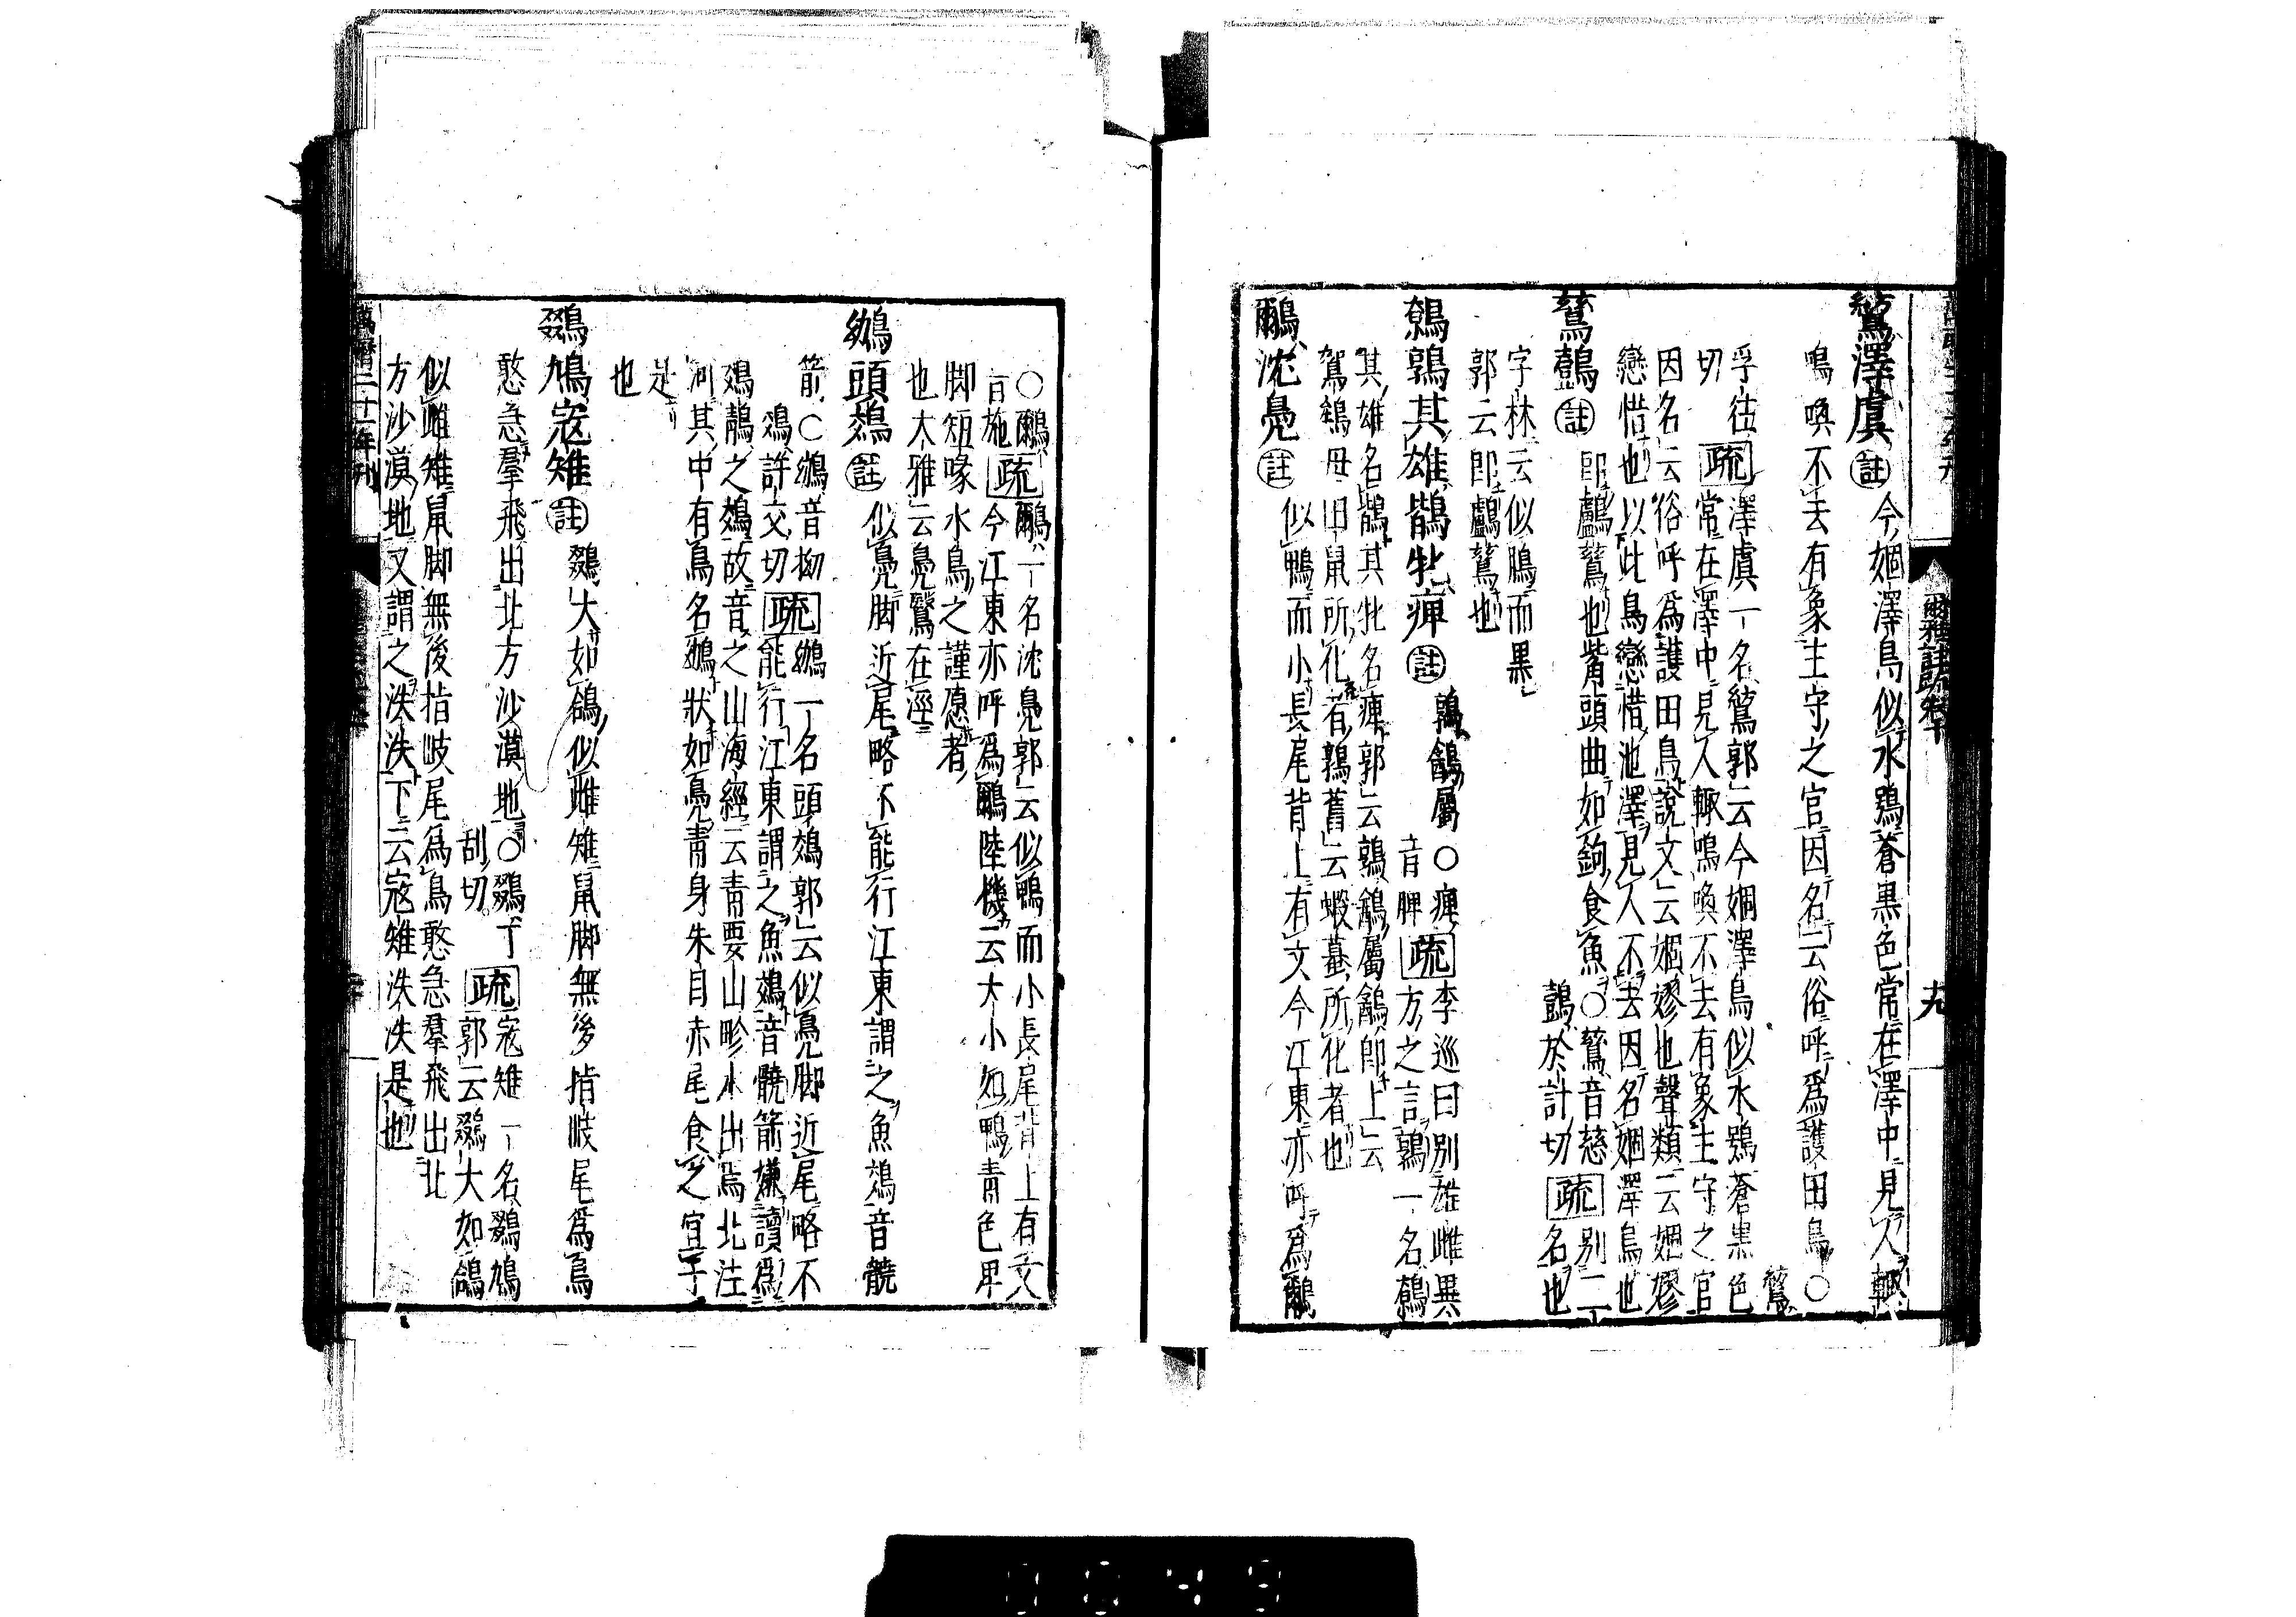 鶭澤虞註今婟澤鳥似水鴞蒼黒色常在澤中見人輒
鳴喚不去有象主守之官因名云俗呼爲護田鳥〇鶭
孚往切疏澤虞一名鶭郭云今婟澤鳥似水鴞蒼黒色
常在澤中見人輒鳴喚不去有象主守之官
因名云俗呼爲護田鳥說文云婟嫪也聲類云婟嫪
戀惜也以此鳥戀惜池澤見人不去因名婟澤鳥也
鶿鷧註即鸕鶿也觜頭曲如鉤食魚〇鶿音慈
鷧於計切疏別二名也
字林云似鶂而黒
郭云即鸕鶿也
鷯鶉其雄鶛牝痺註鶉䳺屬〇痺音脾疏李巡曰別雄雌異
方之言鶉一名鷯
其雄名鶛其牝名痺郭云鶉䳺屬䳺即上云
鴽鴾母田鼠所化者鶉舊云蝦蟇所化者也
鸍沈鳧註似鴨而小長尾背上有文今江東亦呼爲鸍
〇鸍音施疏鸍一名沈鳧郭云似鴨而小長尾背上有文
今江東亦呼爲鸍陸機云大小如鴨青色卑
脚短喙水鳥之謹愿者
也大雅云鳧鷖在涇
鴢頭鵁註似鳧脚近尾略不能行江東謂之魚鵁音髐
箭〇鴢音拗鵁許交切疏鴢一名頭鵁郭云似鳧脚近尾略不
能行江東謂之魚鵁音髐箭嫌讀爲
鵁鶄之鵁故音之山海經云青要山畛水出焉北注
河其中有鳥名鴢狀如鳧青身朱目赤尾食之宜子
是
也
鵽鳩寇雉註鵽大如鴿似雌雉鼠脚無後指岐尾爲鳥
憨急羣飛出北方沙漠地〇鵽丁刮切疏寇雉一名鵽鳩
郭云鵽大如鴿
似雌雉鼠脚無後指岐尾爲鳥憨急羣飛出北
方沙漠地又謂之泆泆下云寇雉泆泆是也
爾雅註疏卷十
九
萬曆二十一年刊